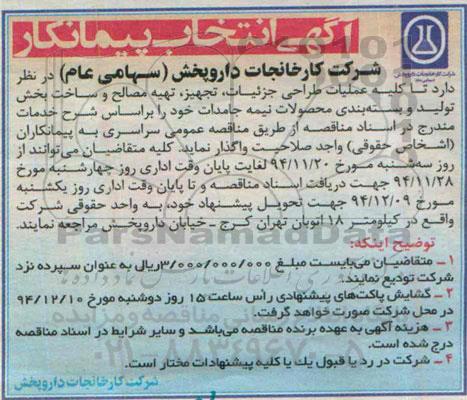 آگهی انتخاب پیمانکار
شرکت کارخانجات داروپخش
(سهامی عام)
شرکت کارخانجات داروپخش (سهامی عام) در نظر
دارد تا کلیه عملیات طراحی جزئیات، تجهیز، تهیه مصالح و ساخت بخش
تولید و بسته‌بندی محصولات نیمه جامدات خود را براساس شرح خدمات
مندرج در اسناد مناقصه از طریق مناقصه عمومی سراسری به پیمانکاران
(اشخاص حقوقی) واجد صلاحیت واگذار نماید. کلیه متقاضیان می‌توانند از
روز سه‌شنبه مورخ ۹۴/۱۱/۲۰ لغایت پایان وقت اداری روز چهارشنبه مورخ
۹۴/۱۱/۲۸ جهت دریافت اسناد مناقصه و تا پایان وقت اداری روز یکشنبه
مورخ ۹۴/۱۲/۰۹ جهت تحویل پیشنهاد خود، به واحد حقوقی شرکت
واقع در کیلومتر ۱۸ اتوبان تهران کرج - خیابان داروپخش مراجعه نمایند.
توضیح اینکه:
۱ - متقاضیان می‌بایست مبلغ ۳/۰۰۰/۰۰۰/۰۰۰ریال به عنوان سپرده نزد
شرکت تودیع نمایند.
۲ - گشایش پاکت‌های پیشنهادی رأس ساعت ۱۵ روز دوشنبه مورخ ۹۴/۱۲/۱۰
در محل شرکت صورت خواهد گرفت.
۳ - هزینه آگهی به عهده برنده مناقصه می‌باشد و سایر شرایط در اسناد مناقصه
درج شده است.
۴ - شرکت در رد یا قبول یك یا کلیه پیشنهادات مختار است.
شرکت کارخانجات داروپخش
ParsNamadData